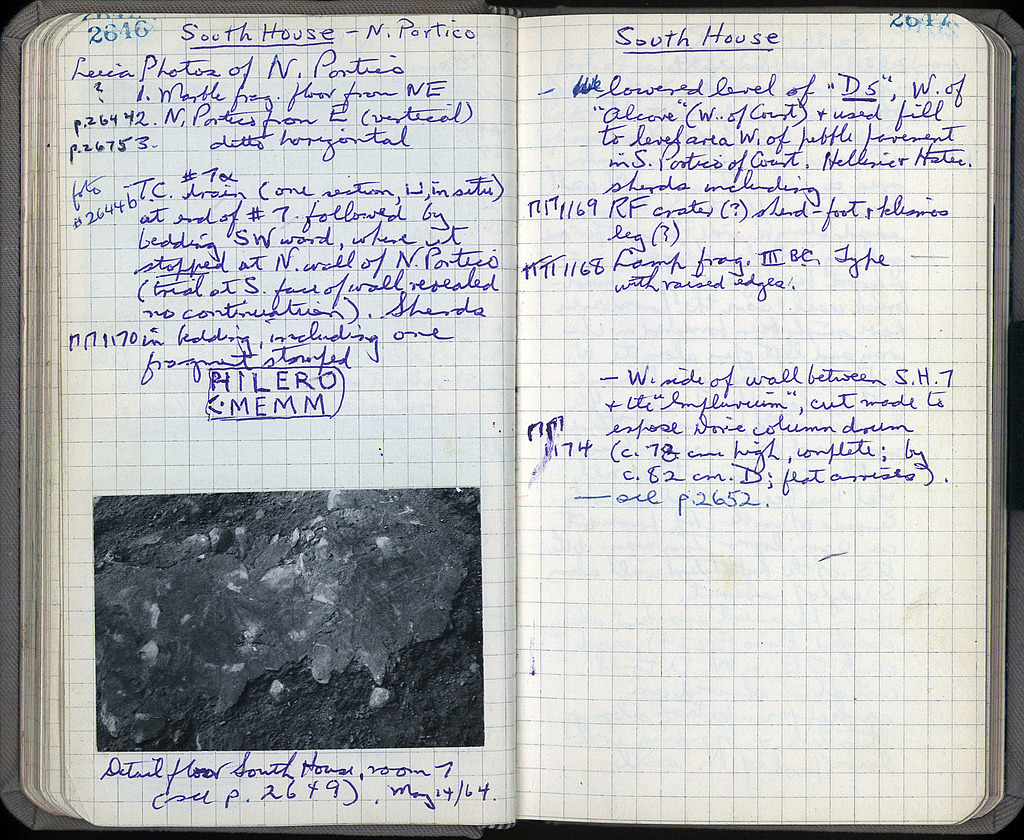 2646
South House - N. Portico
Leica Photos of N. Portico
? 1. Marble frag. floor from NE
p.2644 2. N. Portico from E (vertical)
p.2675 3. ditto horizontal
#7a
foto
#2644b
- T.C. drain (one section, ⊔, in situ)
at end of #7. followed by
bedding SW ward, where it
stopped at N. wall of N. Portico
(trial at S. face of wall revealed
no continuation). Sherds
ΠΠ1170 in bedding, including one
fragment stamped
PHILERO
MEMM
Detail floor South House, room 7
(see p. 2649). May 14/64.
2647
South House
- We lowered level of "D5", W. of
"Alcove" (W. of Court) & used fill
to level area W. of pebble pavement
in S. Portico of Court. Hellenic & Hstc.
sherds including
ΠΠ1169 RF crater (?) sherd - foot & klismos
leg (?)
ΠΠ1168 Lamp frag. III BC. Type
with raised edges.
- W. side of wall between S.H. 7
+ the "Impluvium", cut made to
expose Doric column drum
ΠΠ
1174 (c. 78 cm high, complete; by
c. 82 cm. D; flat arrises).
— see p. 2652.